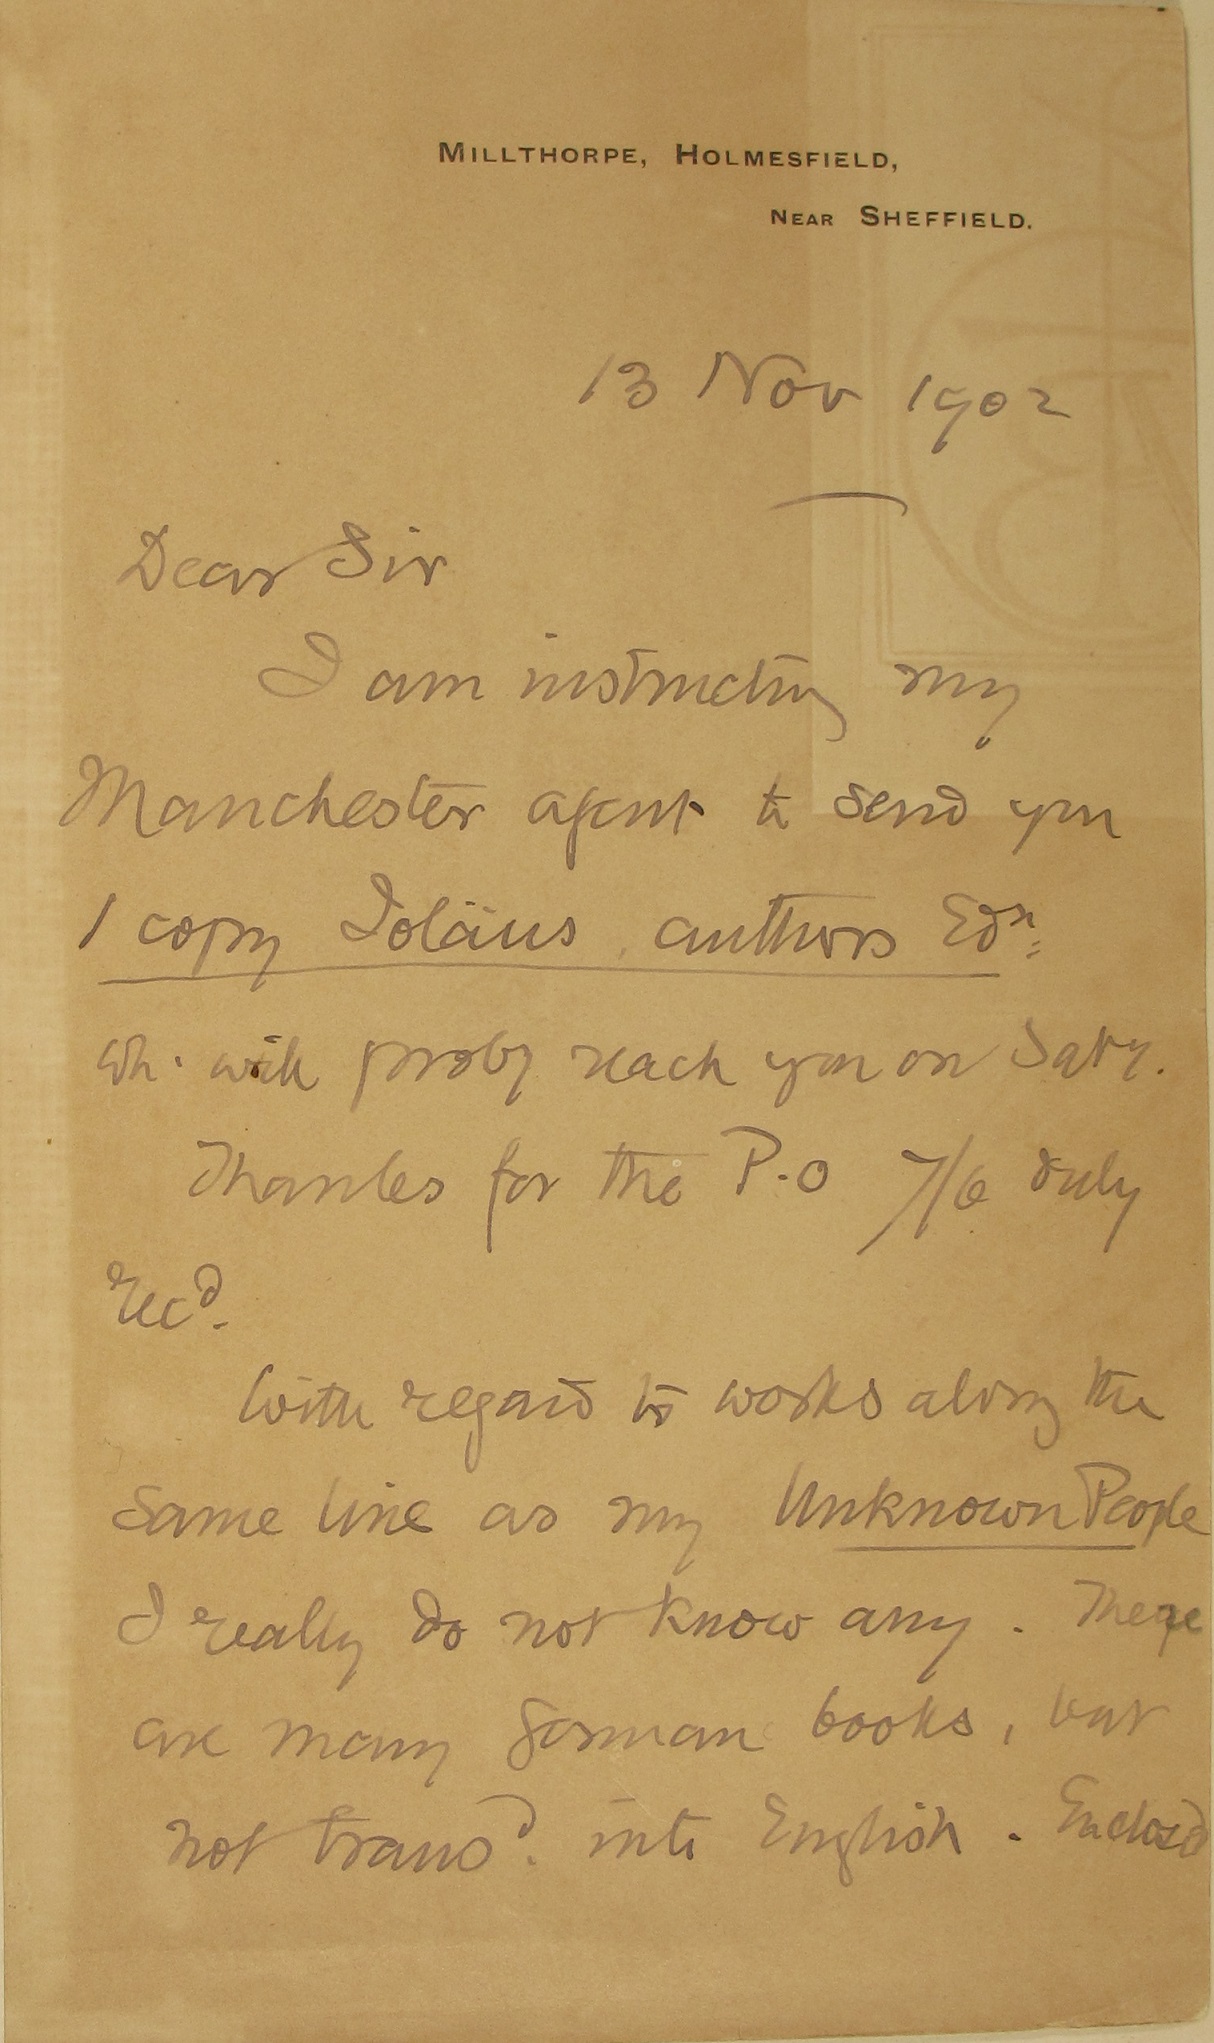 MILLTHORPE, HOLMESFIELD,
NEAR SHEFFIELD.
13 Nov 1902
Dear Sir
I am instructing my
Manchester agent to send you
1 copy Ioläus, authors Edn.
wh. will proby reach you on Saty.
Thanks for the P.O 7/6 duly
recd.
With regard to works along the
same line as my Unknown People
I really do not know any. There
are many German books, but
not transd. into English. Enclosd